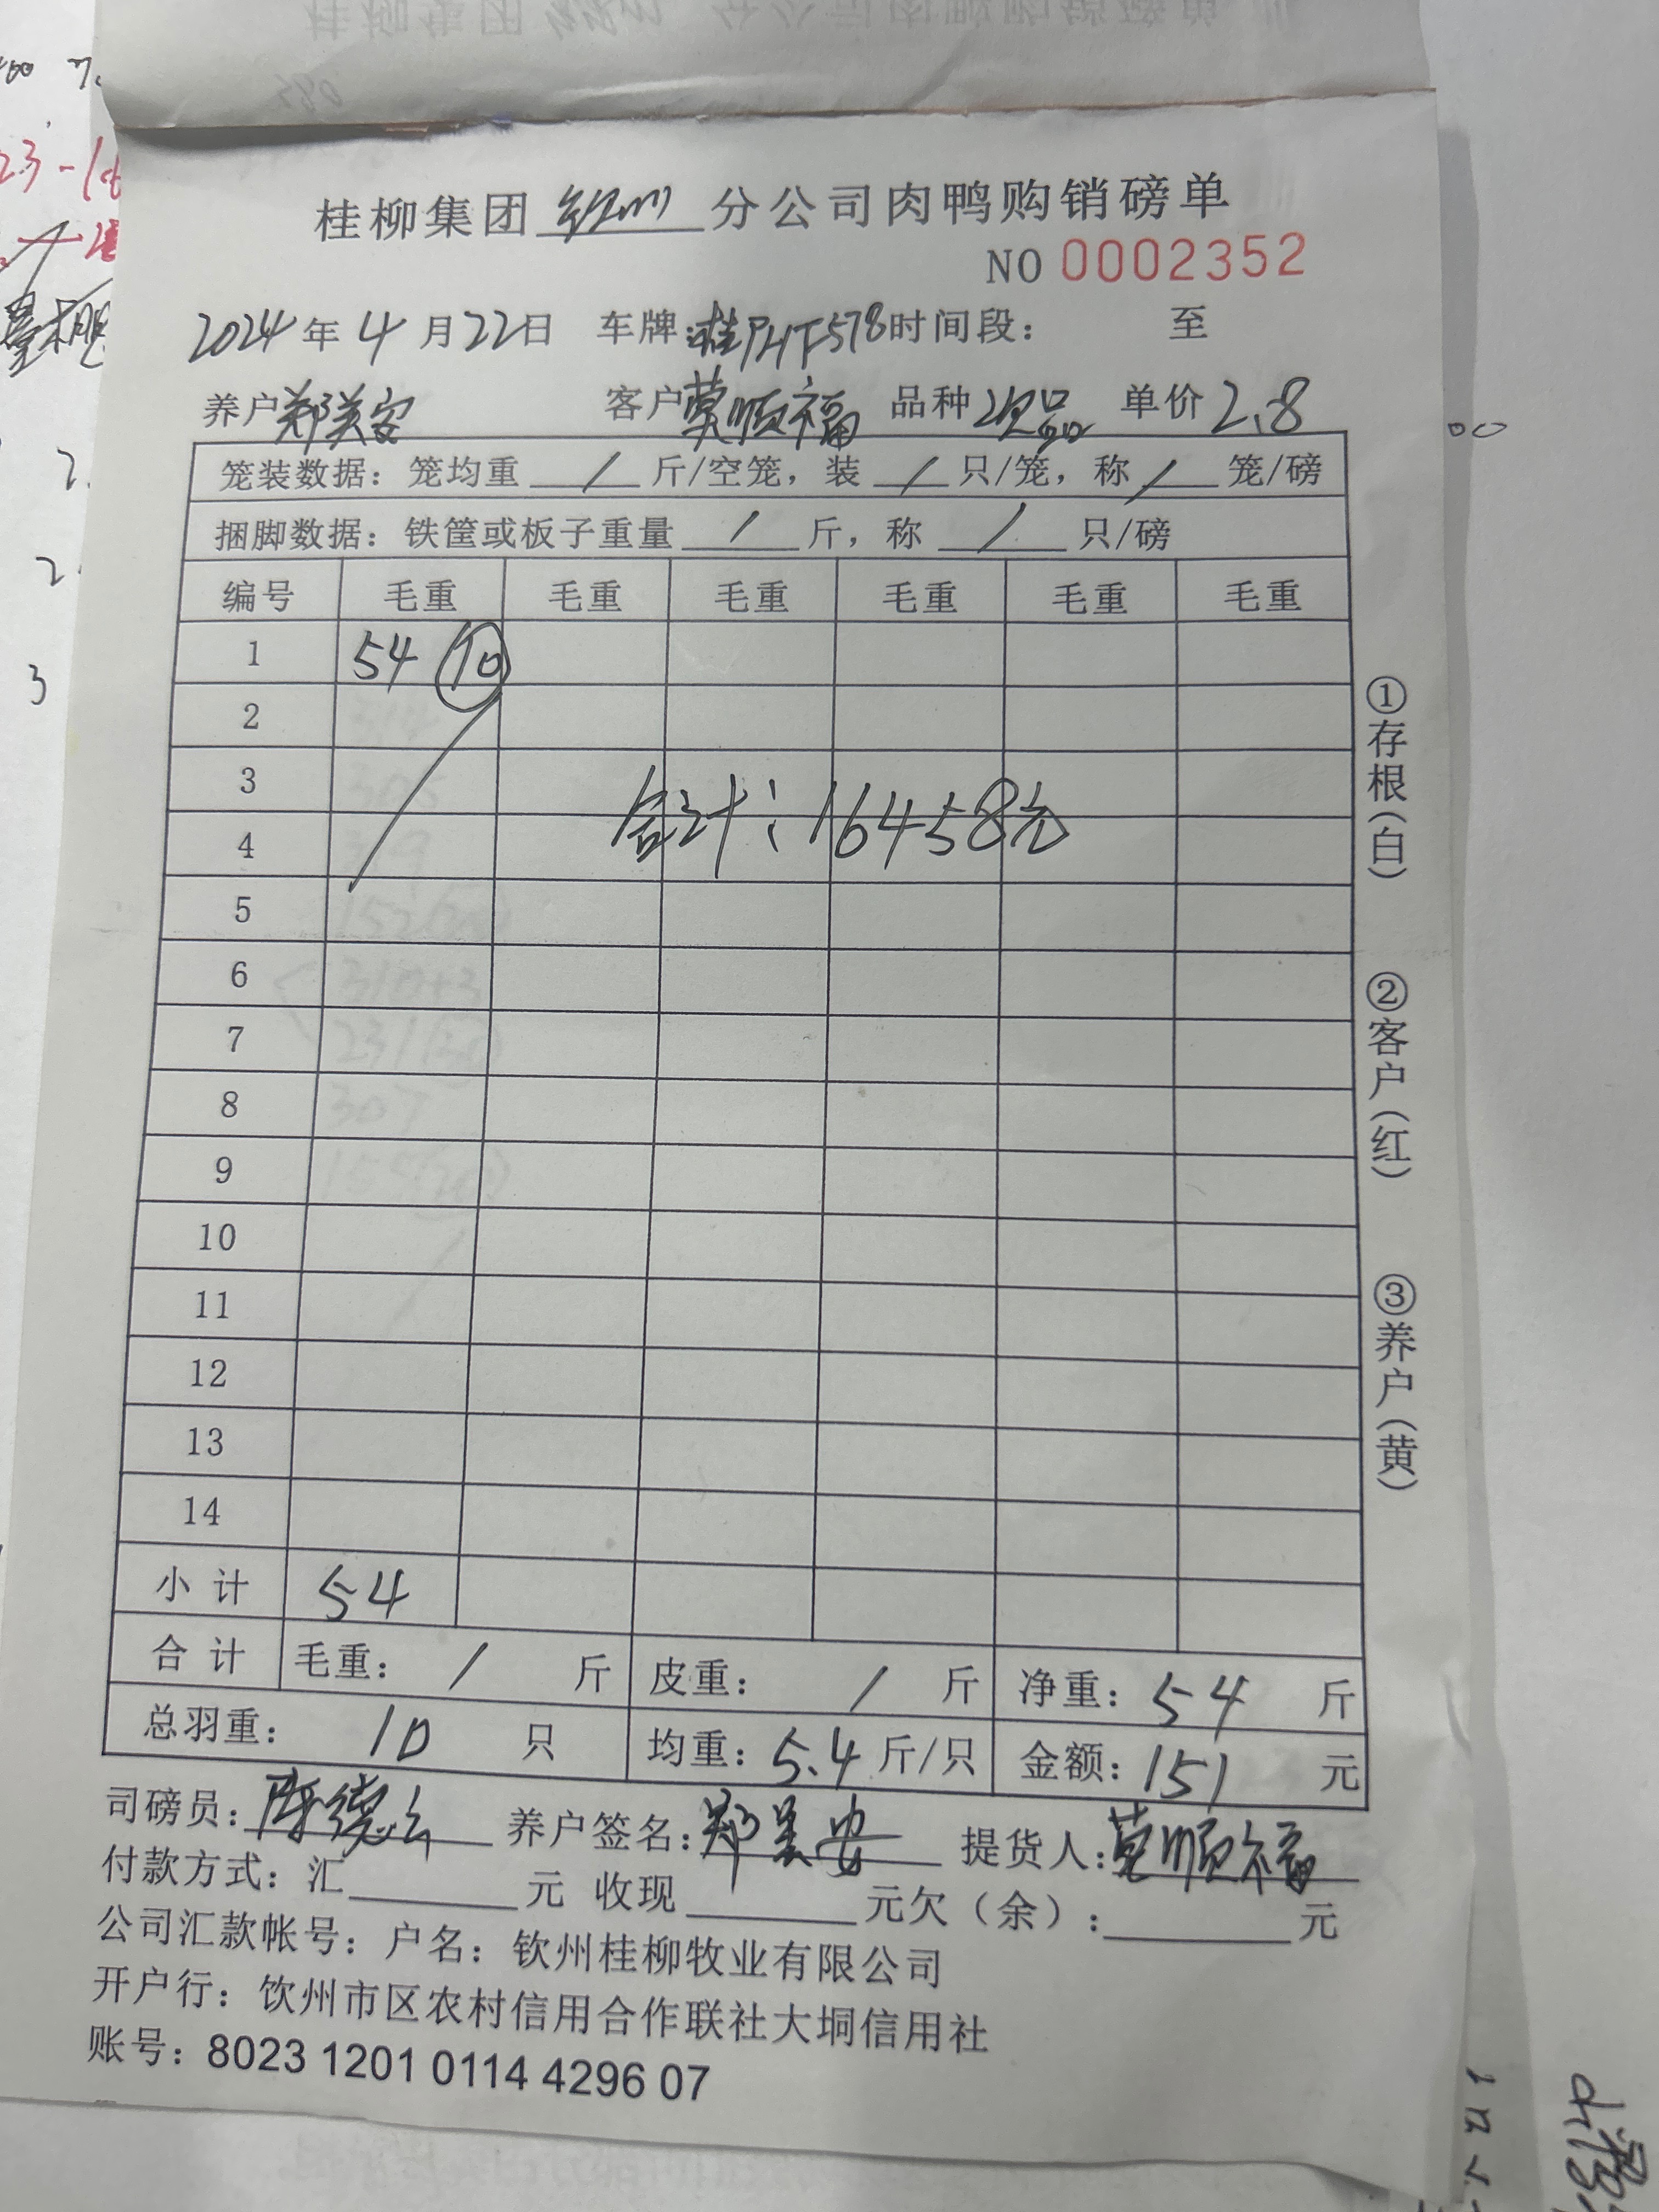 桂柳集团 钦州 分公司肉鸭购销磅单
NO 0002352
2024年4月22日 车牌: 桂PHF578 时间段: 至
养户 郑美安 客户 莫顺福 品种 次品 单价 2.8
笼装数据: 笼均重 / 斤/空笼, 装 / 只/笼, 称 / 笼/磅
捆脚数据: 铁筐或板子重量 / 斤, 称 / 只/磅
编号 毛重 毛重 毛重 毛重 毛重 毛重
1 54 10
2
3
合计: 16458元
4
5
6
7
8
9
10
11
12
13
14
小计 54
合计 毛重: / 斤 皮重: / 斤 净重: 54 斤
总羽重: 10 只 均重: 5.4 斤/只 金额: 151 元
司磅员: 陈德云 养户签名: 郑美安 提货人: 莫顺福
付款方式: 汇 元 收现 元欠(余): 元
公司汇款帐号: 户名: 钦州桂柳牧业有限公司
开户行: 饮州市区农村信用合作联社大垌信用社
账号: 8023 1201 0114 4296 07
①存根(白)
②客户(红)
③养户(黄)